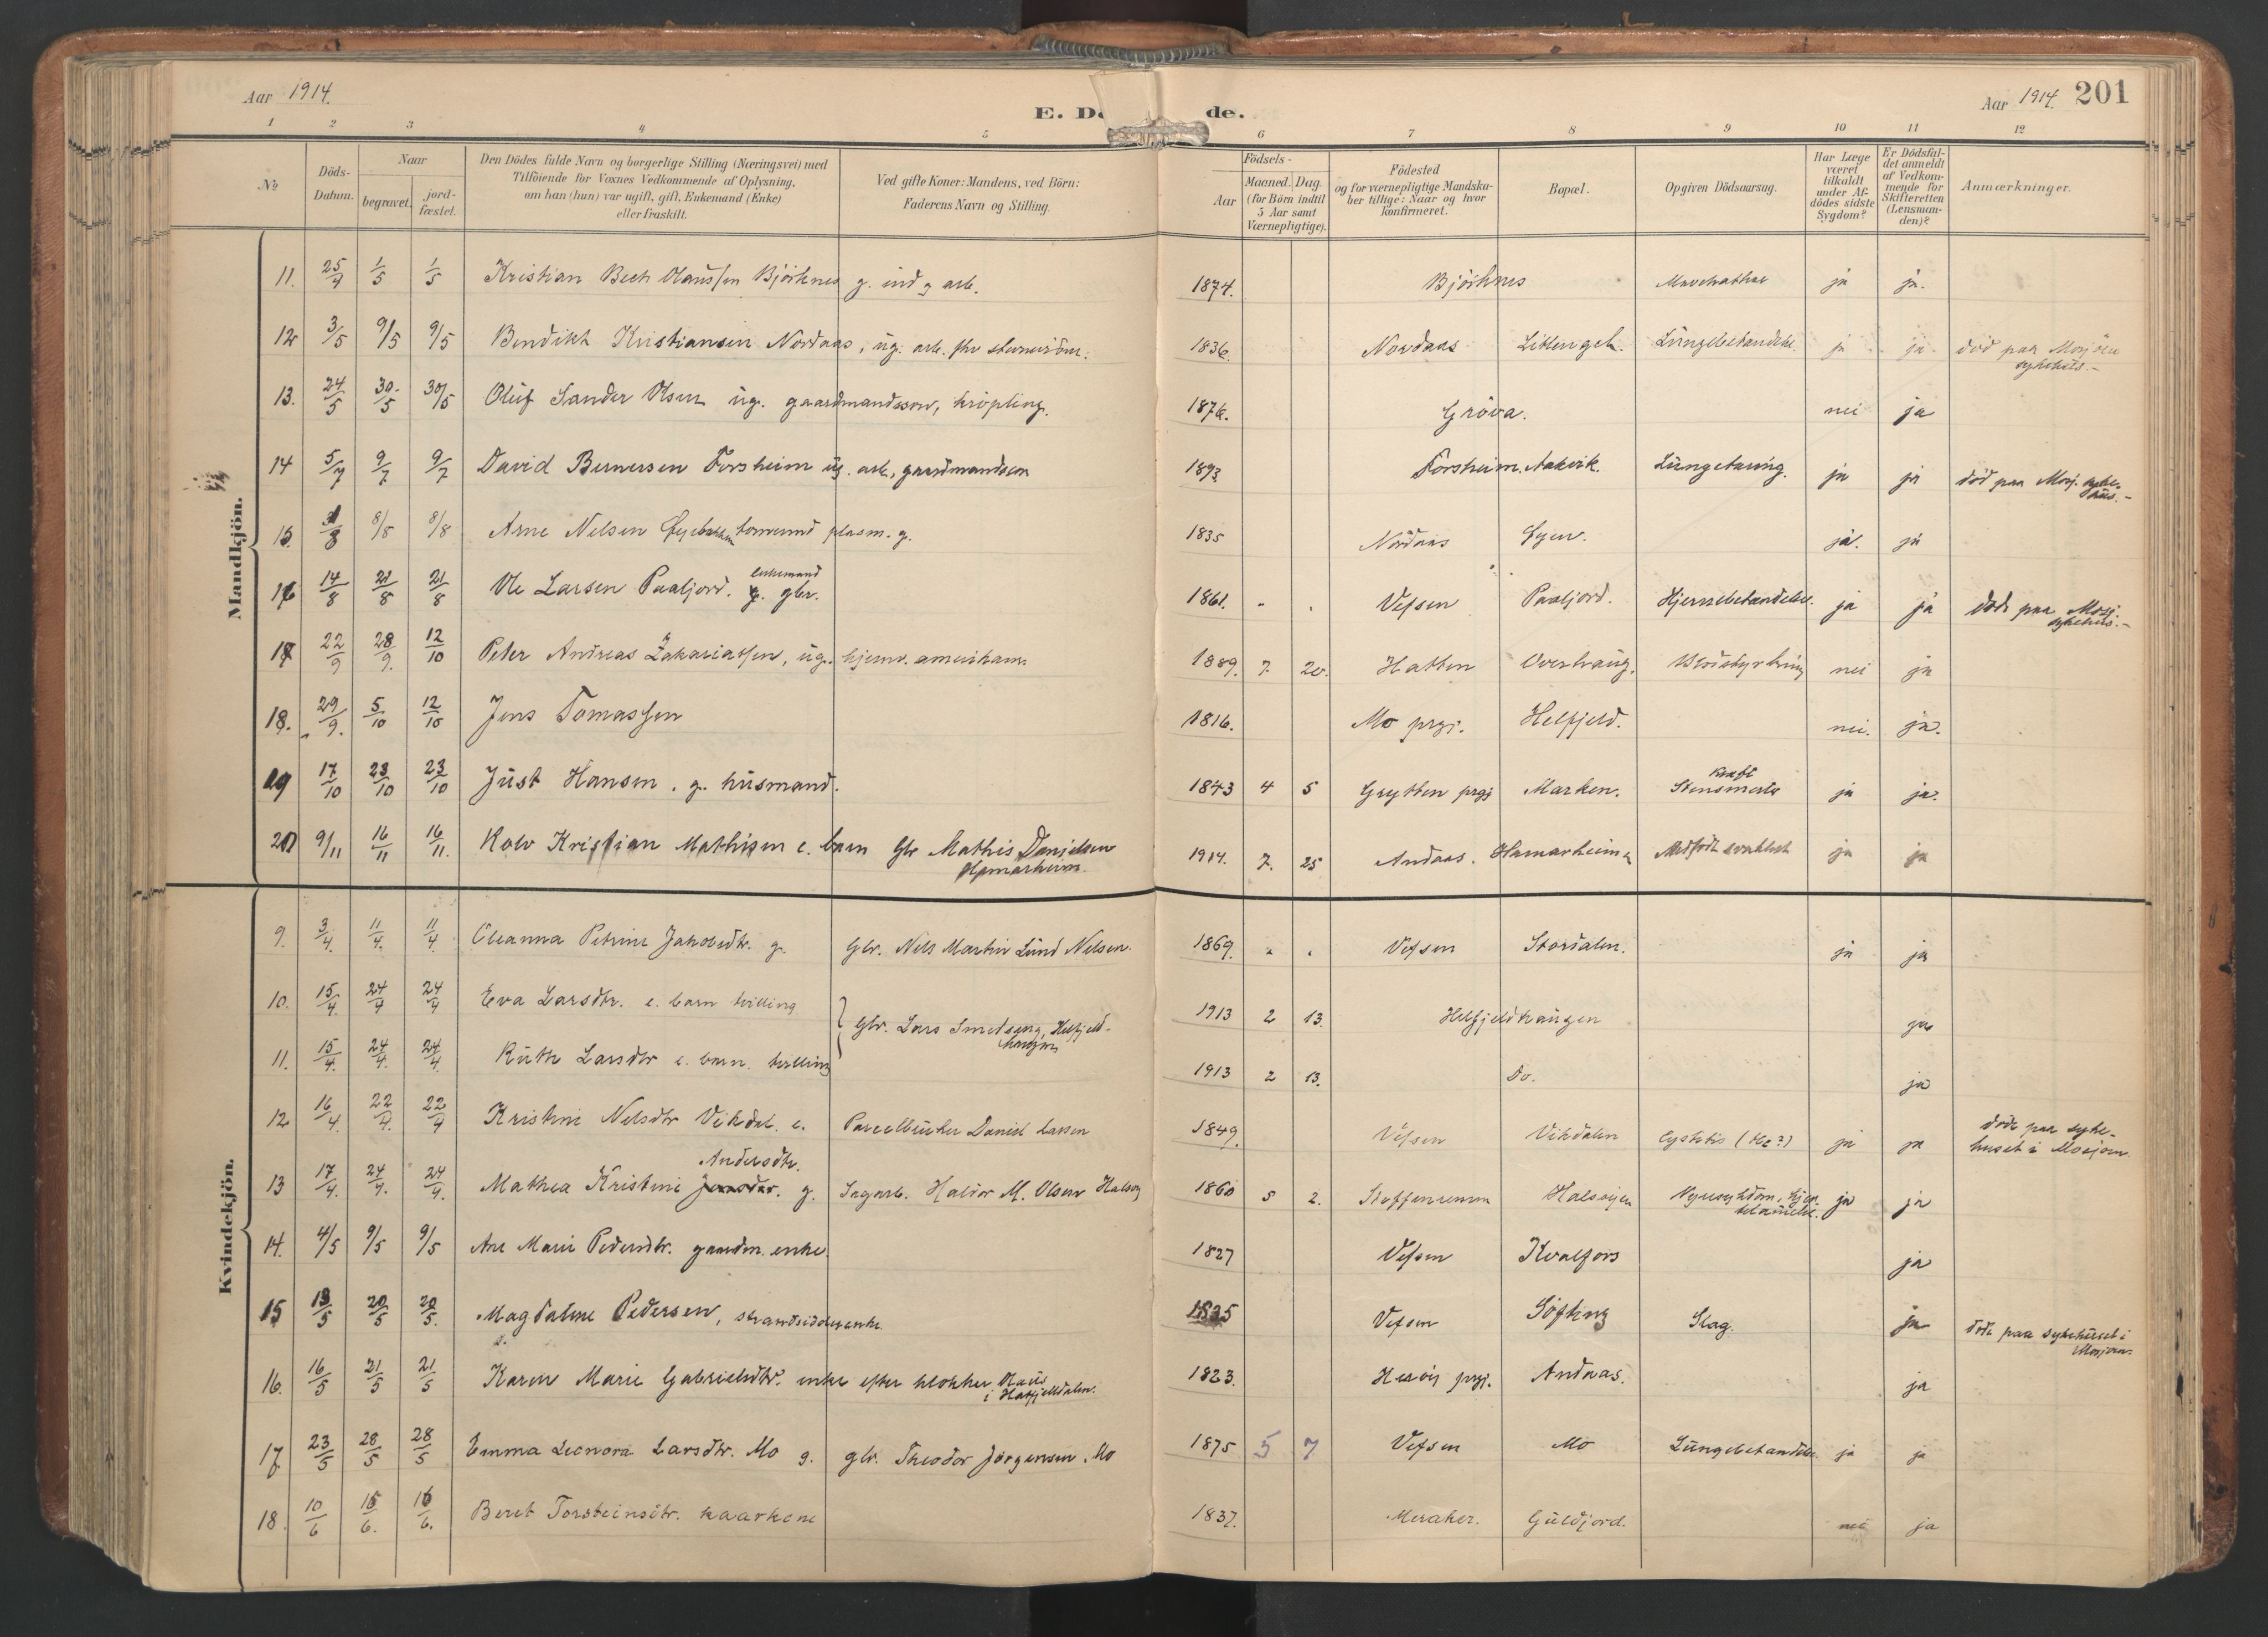 Aar 1914.
E. Dø de.
Aar 1914. 201
1 2 3 4 5 6 7 8 9 10 11 12
No
Döds-Datum.
Naar
begravet.
jord-fæstet.
Den Dödes fulde Navn og borgerlige Stilling (Næringsvei) med
Tilföiende for Voxnes Vedkommende af Oplysning,
om han (hun) var ugift, gift, Enkemand (Enke)
eller fraskilt.
Ved gifte Koner: Mandens, ved Börn:
Faderens Navn og Stilling.
Födsels-
Aar
Maaned. Dag
(for Börn indtil
5 Aar samt
Værnepligtige).
Födested
og for værnepligtige Mandska-
ber tillige: Naar og hvor
konfirmeret.
Bopæl.
Opgiven Dödsaarsag.
Har Læge
været
tilkaldt
under Af-
dödes sidste
Sygdom?
Er Dödsfal-
det anmeldt
af Vedkom-
mende for
Skifteretten
(Lensman-
den)?
Anmærkninger.
Mandkjön.
11. 25/4 1/5 1/5 Kristian Bech Olaussen Björknes g. ind g arb. 1874. Björknes ja ja.
12 3/5 9/5 9/5 Bendikt Kristiansen Nordaas, ug. arb. 1836. Nordaas Lungebetændelse ja ja död paa Mosjöen
sykehus.-
13. 24/5 30/5 30/5 Oluf Sander Olsen ug. gaardmandssön, kröpling. 1876. Gröva. nei ja
14 5/7 9/7 9/7 David Bernersen Forsheim ug. arb., gaardmandssön 1893 Forsheim. Aakvik. Lungetæring. ja ja död paa Mosj. syke-
hus.-
15. 8/8 8/8 Arne Nelsen plasm. g. 1835 Nordaas ja. ja
16 14/8 21/8 21/8 Ole Larsen Paaljord. enkemand g. gbr. 1861. Vefsen Paaljord. Hjernebetændelse. ja ja döde paa Mosj.
sykehus.-
17 22/9 28/9. 12/10 Peter Andreas Zakariassen, ug. hjemv. amerikan. 1889. 7. 20. Hatten nei ja
18. 29/9. 5/10 12/10 Jens Tomassen 1816. Mo prgj. Helfjeld. nei. ja.
19 17/10 23/10 23/10 Just Hansen. g. husmand. 1843 4 5 Grytten prgj Marken. ja ja.
20 9/11 16/11 16/11. Rolv Kristian Mathisen e. barn Gbr Mathis Danielsen
Hamarheim. 1914. 7. 25 Andaas. Hamarheim Medfödt svakhet ja ja
Kvindekjön.
9. 3/4. 11/4. 11/4 Oleanna Petrine Jakobsdtr. g. Gbr. Nils Martin Lund Nelsen. 1869. Vefsen Stordalen. ja ja
10. 15/4. 24/4 24/4 Eva Larsdtr. e. barn tvilling 1913 2 13. Helfjeldhaugen ja
Gbr. Lars Smedseng, Helfjeld-
haugen
11. 15/4. 24/4. 24/4. Ruth Larsdtr e. barn. tvilling 1913 2 13. Do. ja
12 16/4. 22/4. 22/4 Kristine Nelsdtr Vikdal. e. Parcelbruker Daniel Larsen 1849. Vefsen Vikdalen Cystitis ja ja döde paa syke-
huset i Mosjöen.
Andersdtr.
13 17/4. 24/4. 24/4. Mathea Kristine Jensdtr. g. Sagarb. Haldor M. Olsen Halsöy 1860 5 2. Steffensrem Halsöyen Nyresykdom, ja ja
14. 4/5 9/5 9/5 Ane Marie Pedersdtr. gaardm. enke. 1827 Vefsen Kvalfors ja
15 13/5 20/5 20/5. Magdalene Pedersen, strandsidderenke 1835 Vefsen Söfting Slag. ja döde paa sykehuset i
Mosjöen.
16. 16/5 21/5 21/5 Karen Marie Gabrielsdtr. enke efter klokker Olaus
i Hatfjelldalen. 1823. Heröy prgj. Andaas. ja
17 23/5 28/5 28/5 Emma Leonora Larsdtr. Mo g. gbr. Theodor Jörgensen, Mo 1875 5 7 Vefsen Mo Lungebetændelse. ja ja
18. 10/6 15/6. 16/6. Beret Torsteinsdtr. kaarkone 1837. Meraker. Guldjord. nei ja